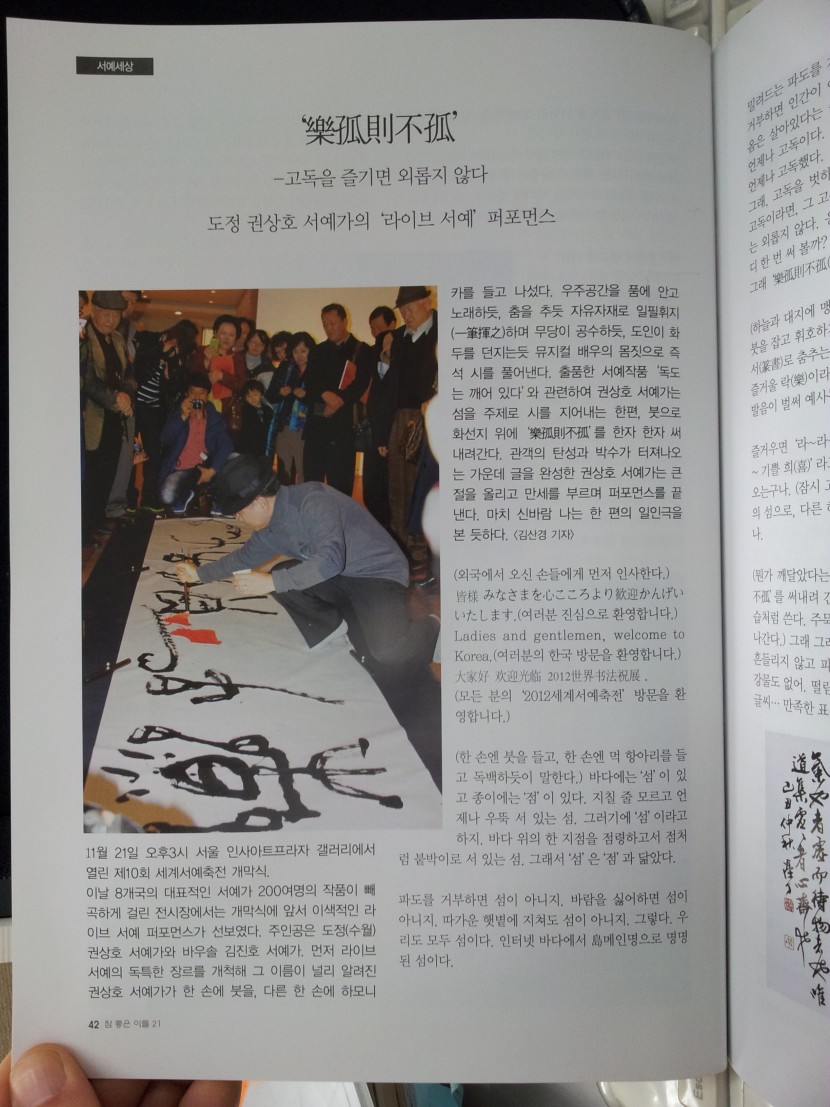 서예세상
‘樂孤則不孤’
-고독을 즐기면 외롭지 않다
도정 권상호 서예가의 ‘라이브 서예’ 퍼포먼스
11월 21일 오후3시 서울 인사아트프라자 갤러리에서
열린 제10회 세계서예축전 개막식.
이날 8개국의 대표적인 서예가 200여명의 작품이 빼
곡하게 걸린 전시장에서는 개막식에 앞서 이색적인 라
이브 서예 퍼포먼스가 선보였다. 주인공은 도정(수월)
권상호 서예가와 바우솔 김진호 서예가. 먼저 라이브
서예의 독특한 장르를 개척해 그 이름이 널리 알려진
권상호 서예가가 한 손에 붓을, 다른 한 손에 하모니
카를 들고 나섰다. 우주공간을 품에 안고
노래하듯, 춤을 추듯 자유자재로 일필휘지
(一筆揮之)하며 무당이 공수하듯, 도인이 화
두를 던지는듯 뮤지컬 배우의 몸짓으로 즉
석 시를 풀어낸다. 출품한 서예작품 ‘독도
는 깨어 있다’와 관련하여 권상호 서예가는
섬을 주제로 시를 지어내는 한편, 붓으로
화선지 위에 ‘樂孤則不孤’를 한자 한자 써
내려간다. 관객의 탄성과 박수가 터져나오
는 가운데 글을 완성한 권상호 서예가는 큰
절을 올리고 만세를 부르며 퍼포먼스를 끝
낸다. 마치 신바람 나는 한 편의 일인극을
본 듯하다. <김산경 기자>
(외국에서 오신 손들에게 먼저 인사한다.)
皆様 みなさまを心こころより歓迎かんげい
いたします.(여러분 진심으로 환영합니다.)
Ladies and gentlemen, welcome to
Korea.(여러분의 한국 방문을 환영합니다.)
大家好 欢迎光临 2012世界书法祝展 .
(모든 분의 ‘2012세계서예축전’ 방문을 환
영합니다.)
(한 손엔 붓을 들고, 한 손엔 먹 항아리를 들
고 독백하듯이 말한다.) 바다에는 ‘섬’이 있
고 종이에는 ‘점’이 있다. 지칠 줄 모르고 언
제나 우뚝 서 있는 섬. 그러기에 ‘섬’이라고
하지. 바다 위의 한 지점을 점령하고서 점처
럼 붙박이로 서 있는 섬. 그래서 ‘섬’은 ‘점’과 닮았다.
파도를 거부하면 섬이 아니지. 바람을 싫어하면 섬이
아니지. 따가운 햇볕에 지쳐도 섬이 아니지. 그렇다. 우
리도 모두 섬이다. 인터넷 바다에서 島메인명으로 명명
된 섬이다.
42 참 좋은 이들 21
밀려드는 파도를
거부하면 인간이
움은 살아있다는
언제나 고독이다.
언제나 고독했다.
그래, 고독을 벗하
고독이라면, 그 고
는 외롭지 않다.
디 한 번 써 볼까?
그래 ‘樂孤則不孤(
(하늘과 대지에
붓을 잡고 휘호하
서(篆書)로 춤추는
즐거울 락(樂)이라
발음이 벌써 예사
즐거우면 ‘라~라
~ 기쁠 희(喜)’ 라
오는구나. (잠시
의 섬으로, 다른
나.
(뭔가 깨달았다는
不孤’를 써내려
습처럼 쓴다. 주
나간다.) 그래 그
흔들리지 않고
강물도 없어. 떨
글씨… 만족한 표
氣也者虛而待物者也唯
道集虛虛者心齋也